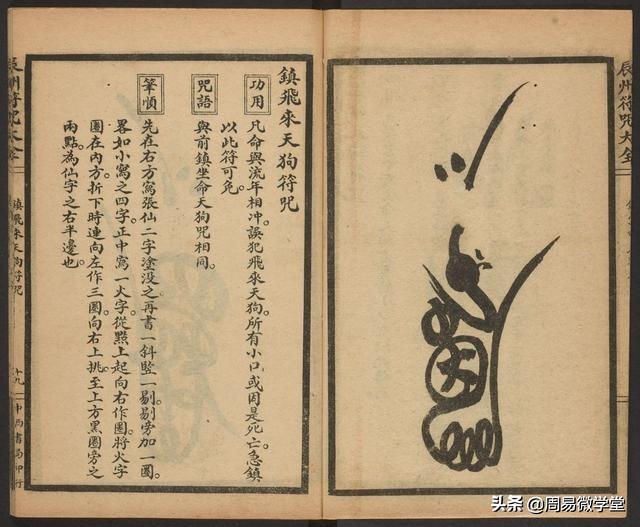 辰州符咒大全
鎮飛來天狗符咒
功用
凡命與流年相冲。誤犯飛來天狗。所有小口。或因是死亡。急鎮
以此符可免。
咒語
與前鎮坐命天狗咒相同。
筆順
先在右方寫張仙二字塗没之。再書一斜竪一剔。剔旁加一圈。
畧如小寫之四字。正中寫一火字。從點上起向右作圈。將火字
圈在內方。折下時連向左作三圈。向右上挑。至上方黑圈旁之
兩點。為仙字之右半邊也。
辰州符咒大全
鎮飛來天狗符咒
十九
中西書局印行
头条 @周易微学堂